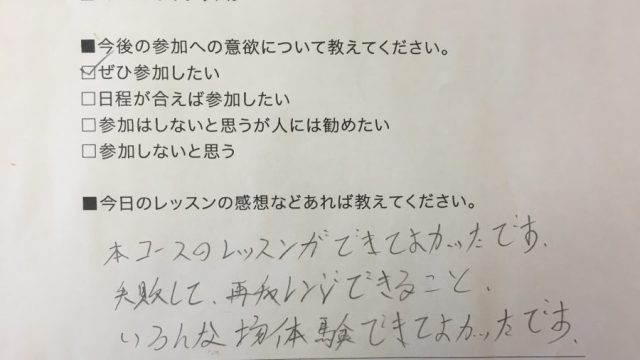 ■今後の参加への意欲について教えてください。
☑ぜひ参加したい
□日程が合えば参加したい
□参加はしないと思うが人には勧めたい
□参加しないと思う
■今日のレッスンの感想などあれば教えてください。
本コースのレッスンができてよかったです.
失敗して、再チャレンジできること、
いろんな 体験できてよかったです.